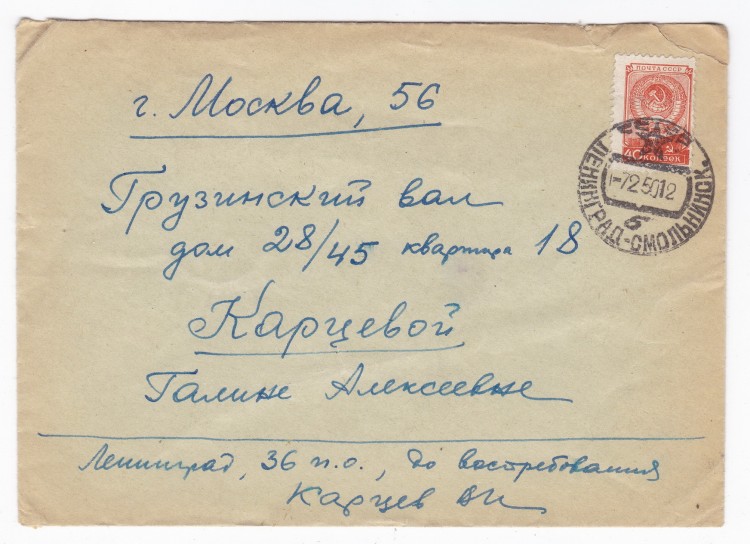 г. Москва, 56
Грузинский вал
дом 28/45 квартира 18
Карцевой
Галине Алексеевне
Ленинград, 36 п.о., до востребования
Карцев ВИ
ПОЧТА СССР
40 КОПЕЕК
ЛЕНИНГРАД-СМОЛЬНИНСК.
-725012
б